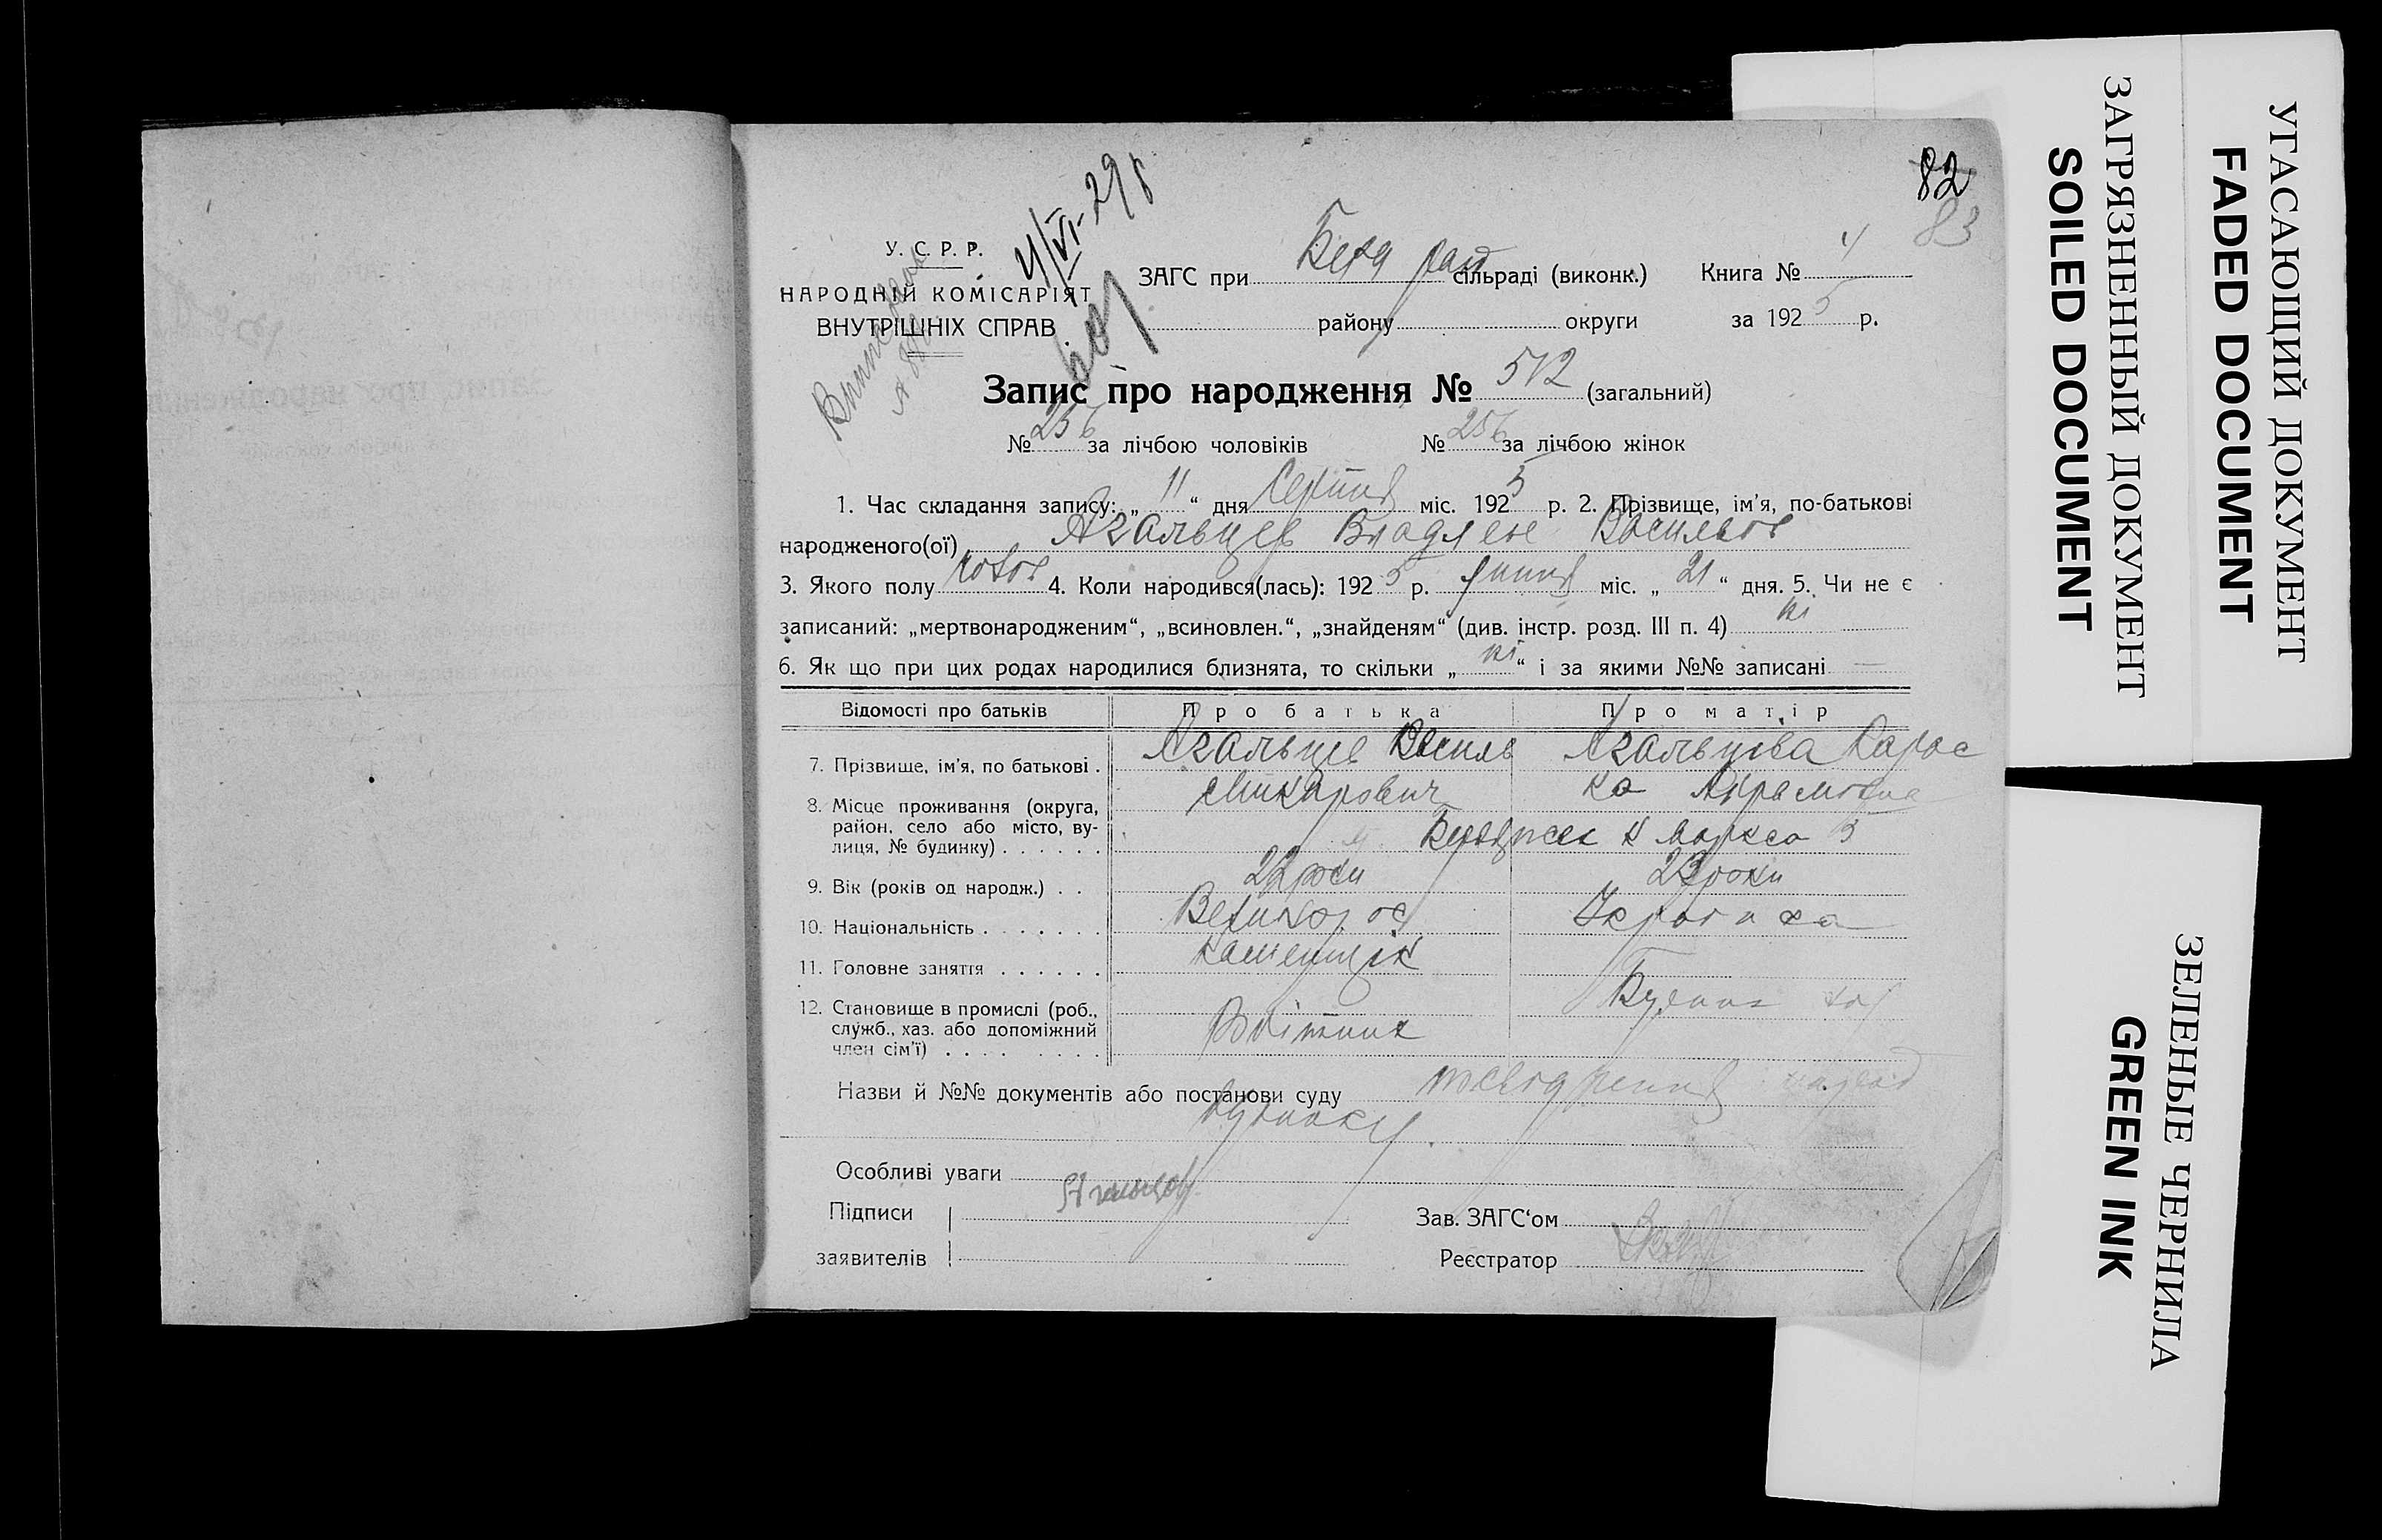 82
83
У. С. Р. Р.
НАРОДНІЙ КОМІСАРІЯТ
ВНУТРІШНІХ СПРАВ
4/VI-29 р
ЗАГС при сільраді (виконк.) Книга № 4
району округи за 1925 р.
Запис про народження № 512 (загальний)
№ 256 за лічбою чоловіків № 256 за лічбою жінок
1. Час складання запису: „ 11 “ дня Серпня міс. 1925 р. 2. Прізвище, ім’я, по-батькові
народженого(ої) Агальцев Владлен
3. Якого полу 4. Коли народився(лась): 1925 р. липня міс. „ 21 “ дня. 5. Чи не є
записаний: „мертвонародженим“, „всиновлен.“, „знайденям“ (див. інстр. розд. III п. 4) ні
6. Як що при цих родах народилися близнята, то скільки „ ні “ і за якими №№ записані —
Відомості про батьків Про батька Про матір
7. Прізвище, ім’я, по батькові . Агальцев Василь Агальцова
8. Місце проживання (округа,
район, село або місто, ву-
лиця, № будинку) . . . . . . К Маркса 5
9. Вік (років од народж.) . . 22 роки 23 роки
10. Національність . . . . . . . Великорос
11. Головне заняття . . . . . . каменщік
12. Становище в промислі (роб.,
служб., хаз. або допоміжний
член сім’ї) . . . . . . . . . Робітник
Назви й №№ документів або постанови суду
будинку.
Особливі уваги
Підписи Агальцов
заявителів
Зав. ЗАГС‘ом
Реєстратор
УГАСАЮЩИЙ ДОКУМЕНТ
FADED DOCUMENT
ЗАГРЯЗНЕННЫЙ ДОКУМЕНТ
SOILED DOCUMENT
ЗЕЛЕНЫЕ ЧЕРНИЛА
GREEN INK